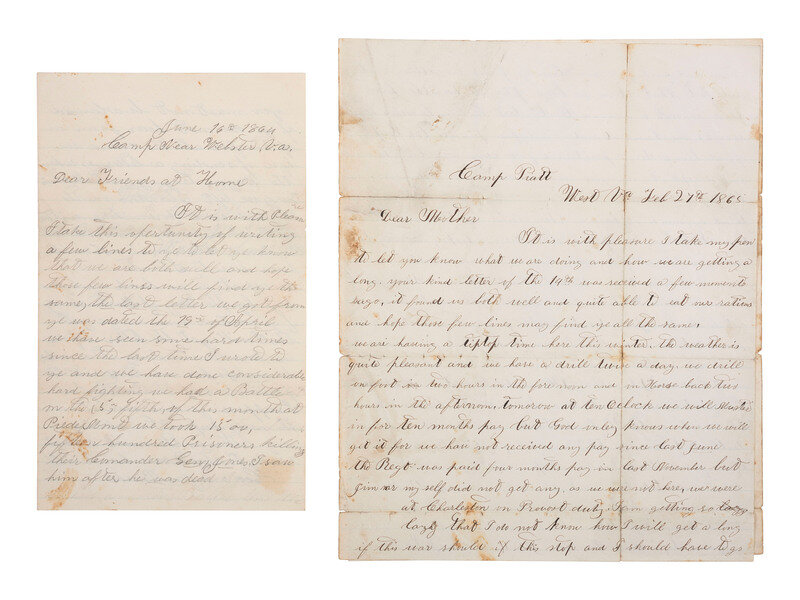 June 16th 1864
Camp Near Webster Va.
Dear Friends at Home
It is with Pleasure
I take this opertunity of writing
a few lines to ye to let ye know
that we are both well and hope
those few lines will find ye the
same, the last letter we got from
ye was dated the 19th of April
we have seen some hard times
since the last time I wrote to
ye and we have done considerable
hard fighting we had a Battle
on the (5) fifth, of this month at
Piedmont we took 15,00,
fifteen hundred Prisoners, killing
their Comander Genl Jones, I saw
him after he was dead
Camp Piatt
West Va Feb 27th 1865
Dear Mother
It is with pleasure I take my pen
to let you know what we are doing and how we are getting a
long, your kind letter of the 19th was received a few moments
ago, it found us both well and quite able to eat our rations
and hope those few lines may find ye all the same,
we are having a tiptop time here this winter, the weather is
quite pleasant and we have a drill twice a day, we drill
on foot two hours in the fore noon and on Horse back two
hours in the afternoon, tomorrow at ten Oclock we will Muster
in for ten months pay but God only knows when we will
get it for we have not received any pay since last June
the Regt was paid four months pay in last November but
Jim or my self did not get any, as we was not here, we were
at Charleston on Provort duty, I am getting so lazy
lazy that I do not know how I will get a long
if this war should if this stop and I should have to go